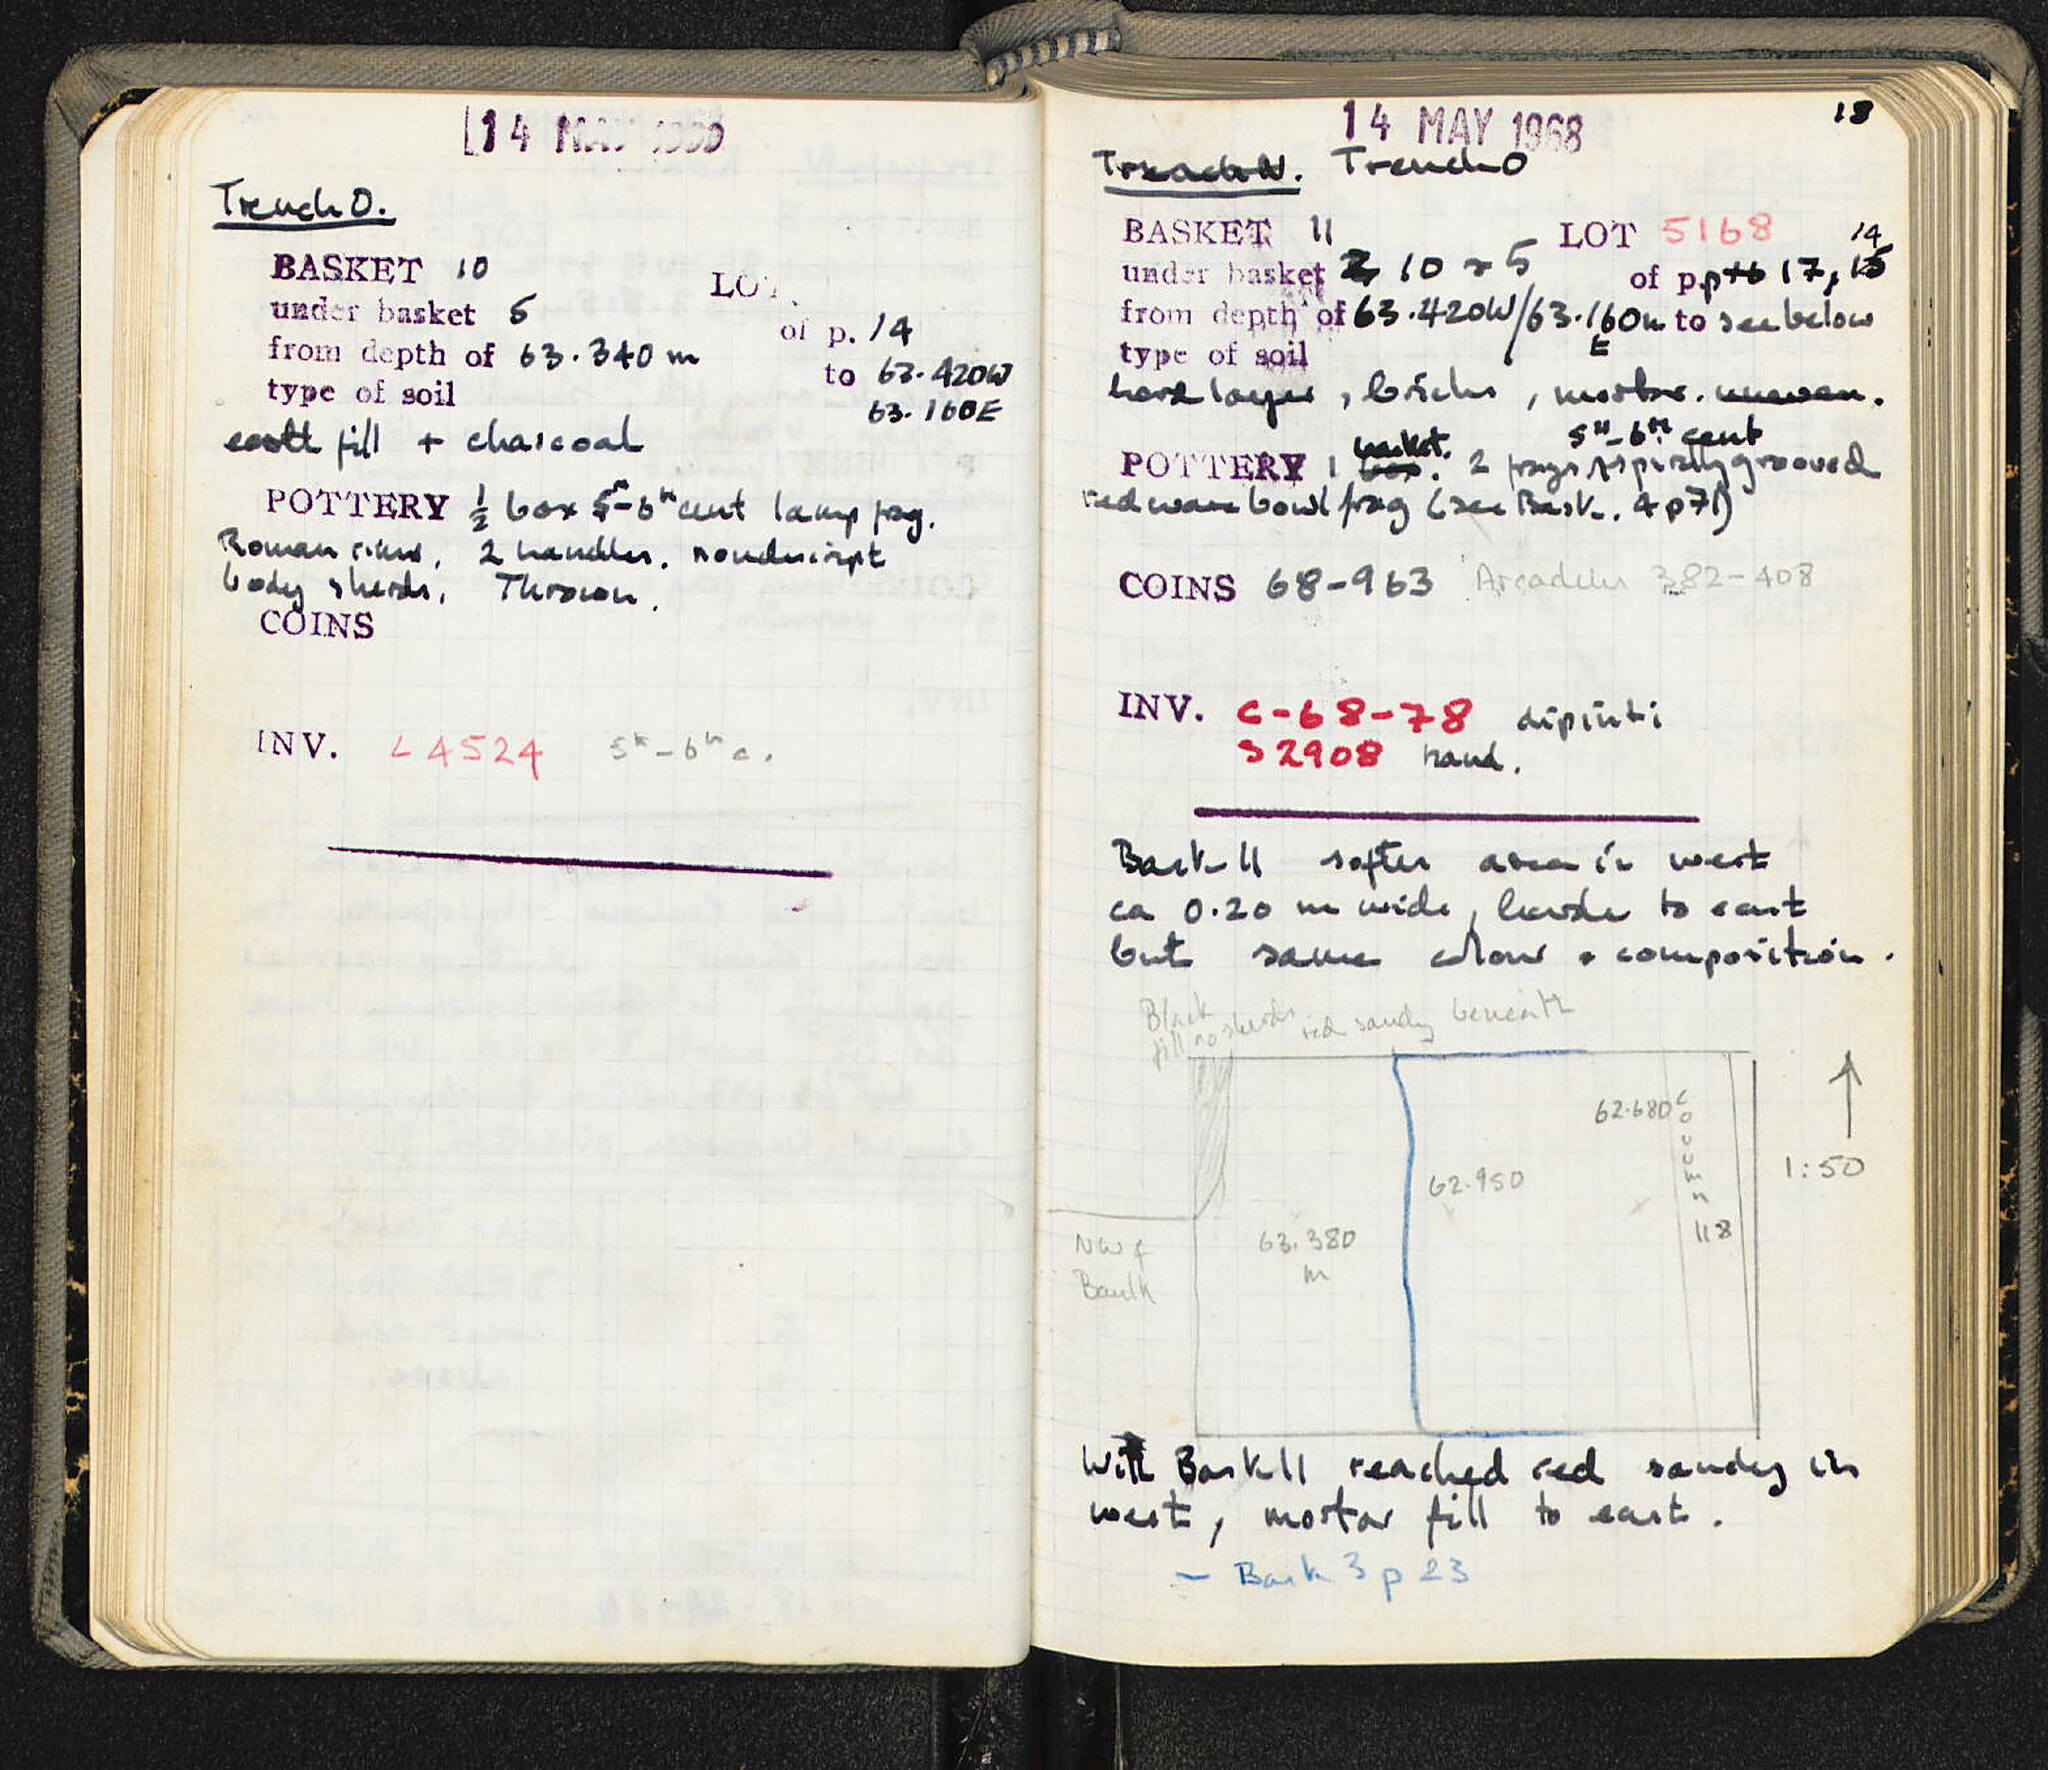 14 MAY
Trench O.
BASKET 10
LOT
under basket 5
of p. 14
from depth of 63.340 m
to 63.420W
type of soil
63.160E
earth fill + charcoal
POTTERY ½ box 5th-6th cent lamp frag.
Roman rims, 2 handles. nondescript
body sherds, Thrown.
COINS
INV. L 4524 5th-6th c.
14 MAY 1968
18
Trench N. Trench O
BASKET 11 LOT 5168 14
under basket 10 + 5 of p. 17,
from depth of 63.420W/63.160m to see below
E
type of soil
hard layer, bricks, mortar. uneven.
basket. 5th-6th cent
POTTERY 1 box. 2 frags spirally grooved
red ware bowl frag (see Bask. 4 p71)
COINS 68-963 Arcadius 382-408
INV. C-68-78 dipinti
S 2908 hand.
Bask 11 softer area in west
ca 0.20 m wide, harder to east
but same colour + composition.
Black
fill no sherds red sandy beneath
62.680
COLUMN
118
1:50
62.950
63.380
m
NW
Baulk
With Bask 11 reached red sandy in
west, mortar fill to east.
— Bask 3 p 23